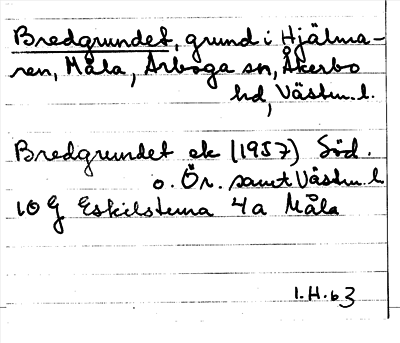 Bredgrundet, grund i Hjälma-
ren, Måla, Arboga sn, Åkerbo
hd, Västm. l.
Bredgrundet ek (1957) Söd.
o. Ör. samt Västm. l
10 G Eskilstuna 4a Måla
1.H.63